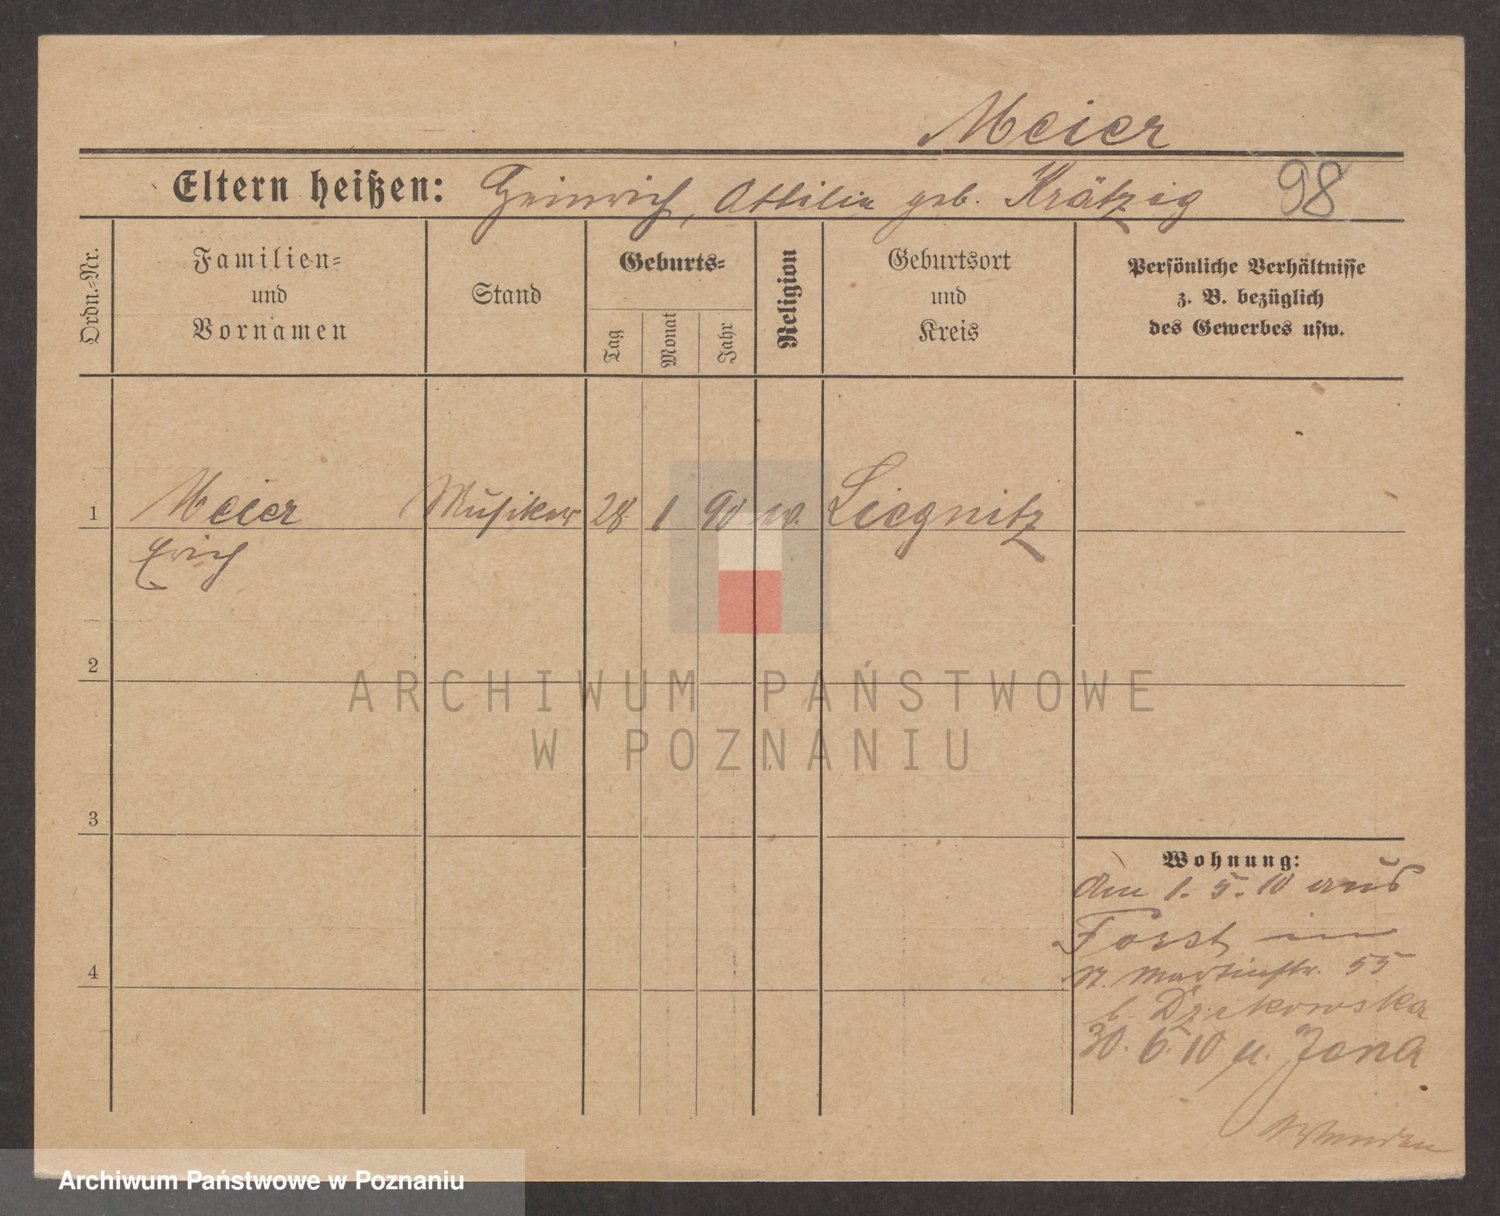 Meier
Eltern heißen: Heinrich, Ottilie geb. Krätzig 98
Ordn.-Nr.
Familien-
und
Vornamen
Stand
Geburts-
Tag
Monat
Jahr
Religion
Geburtsort
und
Kreis
Persönliche Verhältnisse
z. B. bezüglich
des Gewerbes usw.
1 Meier Musiker 28. 1 90 Liegnitz
Erich
2
ARCHIWUM PAŃSTWOWE
W POZNANIU
3
Wohnung:
Am 1. 5. 10 aus
Forst in
St. Martinstr. 55
4
b. Dzikowska
30. 6. 10 n. Jena
Archiwum Państwowe w Poznaniu